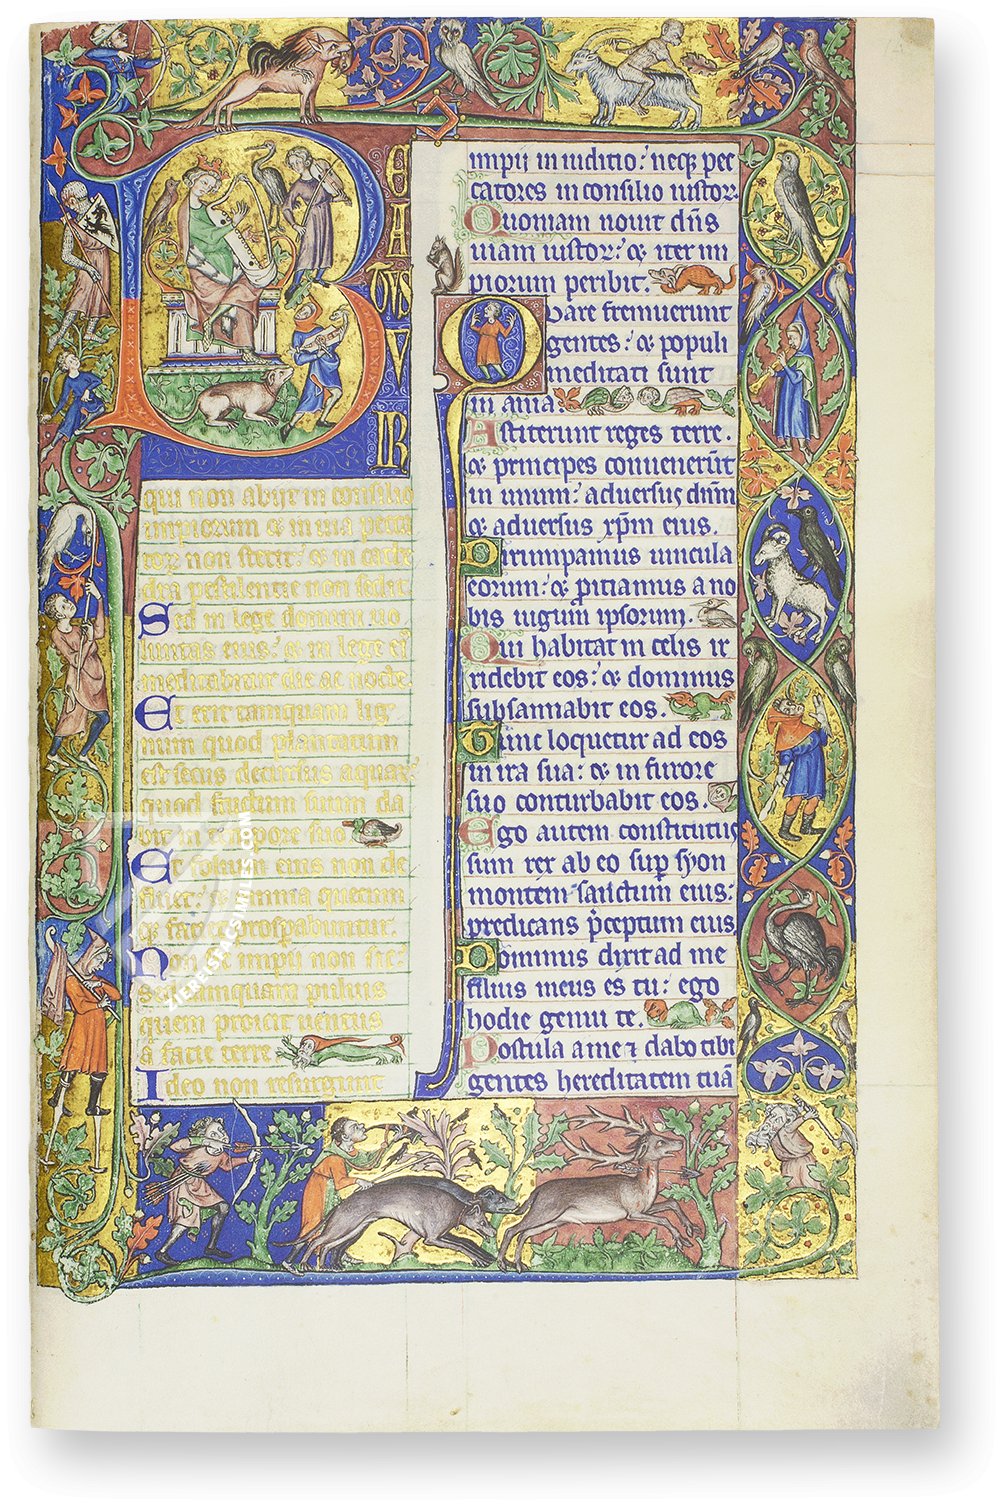 BEATUS VIR
qui non abijt in consilio
impiorum & in uia pecca
torꝝ non stetit: & in cathe
dra pestilentie non sedit.
Sed in lege domini uo
luntas eius: & in lege eiꝰ
meditabitur die ac nocte.
Et erit tamquam lig
num quod plantatum
est secus decursus aquarꝝ
quod fructum suum da
bit in tempore suo
Et folium eius non de
fluet: & omnia quecum
qꝫ faciet prosꝑabuntur.
Non sic impii non sic:
sed tamquam puluis
quem proicit uentus
a facie terre
Ideo non resurgunt
impij in iuditio: neqꝫ pec
catores in consilio iustorꝝ.
Quoniam nouit dn̄s
uiam iustorꝝ: & iter im
piorum peribit.
Quare fremuerunt
gentes: & populi
meditati sunt
in ania:
Astiterunt reges terre.
& principes conuenerūt
in unum: aduersus dn̄m
& aduersus xp̄m eius.
Dirumpamus uincula
eorum: & ꝓitiamus a no
bis iugum ipsorum.
Qui habitat in celis ir
ridebit eos: & dominus
subsannabit eos.
Tunc loquetur ad eos
in ira sua: & in furore
suo conturbabit eos.
Ego autem constitutus
sum rex ab eo suꝑ syon
montem sanctum eius:
predicans p̄ceptum eius
Dominus dixit ad me
filius meus es tu: ego
hodie genui te.
Postula a me ⁊ dabo tibi
gentes hereditatem tuā